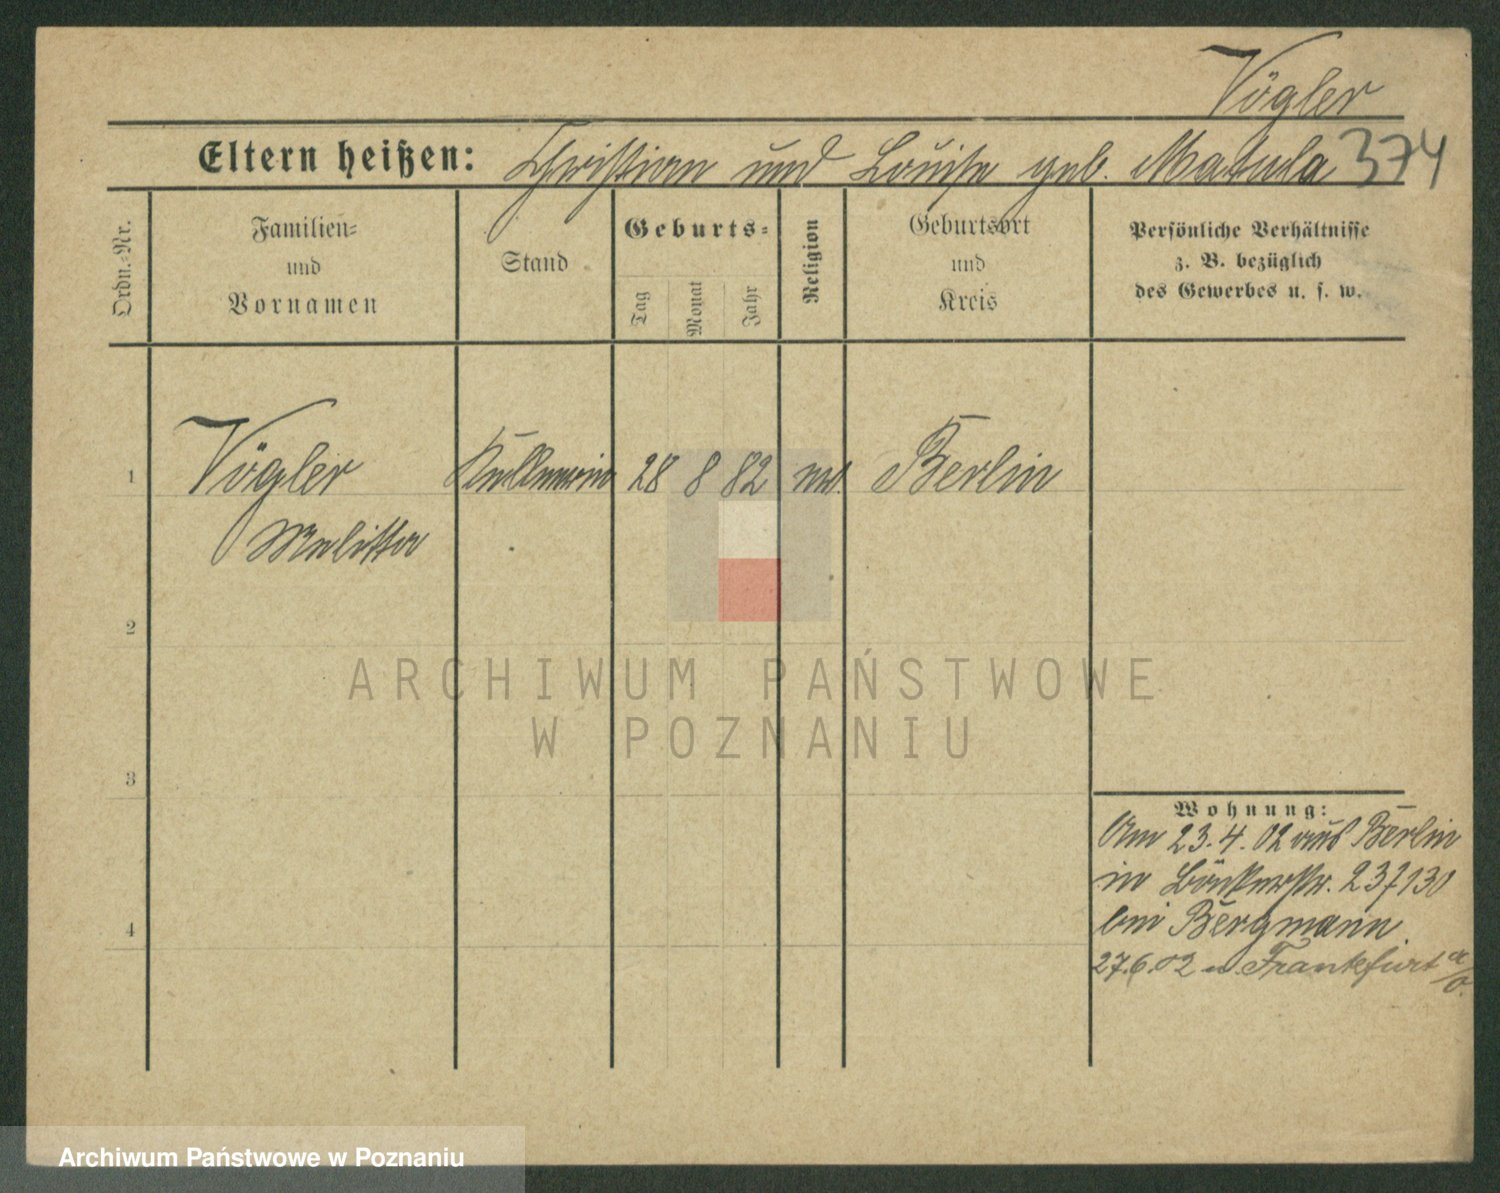 Vögler
Eltern heißen: Christian und Louise geb. Matula 374
Ordn.-Nr.
Familien-
und
Vornamen
Stand
Geburts-
Tag
Monat
Jahr
Religion
Geburtsort
und
Kreis
Persönliche Verhältnisse
z. B. bezüglich
des Gewerbes u. s. w.
1 Vögler Kellnerin 28 8 82 Berlin
Melitta
2
3
4
ARCHIWUM PAŃSTWOWE
W POZNANIU
Wohnung:
Am 23.4.02 aus Berlin
in
bei Bergmann
27.6.02 n. Frankfurt a/O.
Archiwum Państwowe w Poznaniu